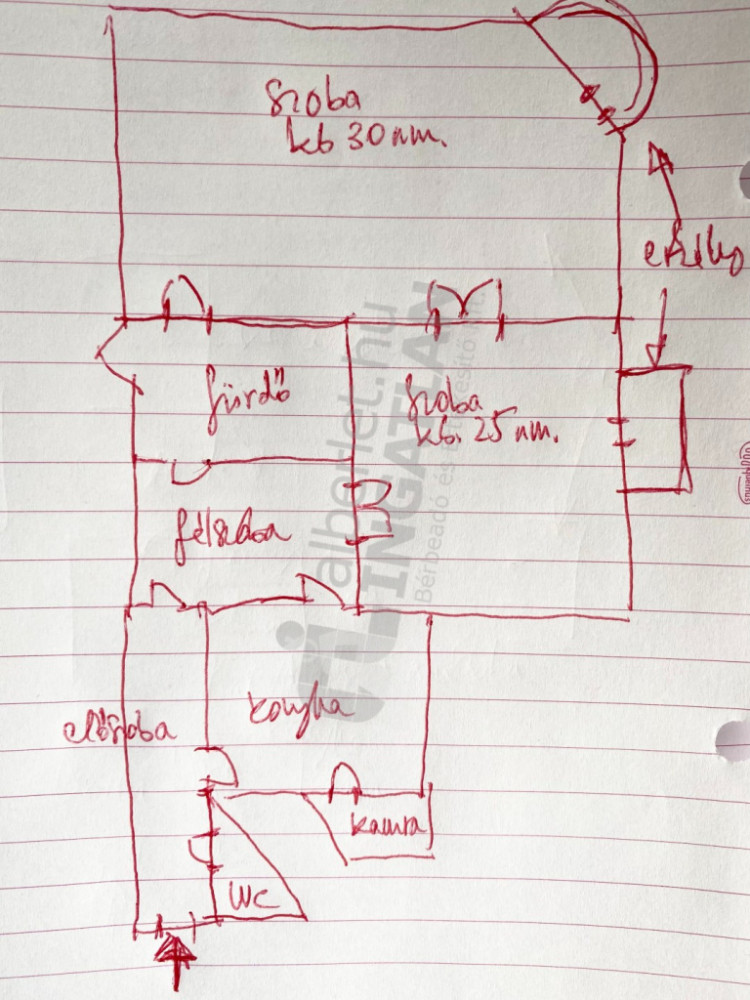 szoba
kb 30 nm.
erkély
fürdő
szoba
kb. 25 nm.
félszoba
előszoba
konyha
kamra
WC
alberlet.hu
INGATLAN